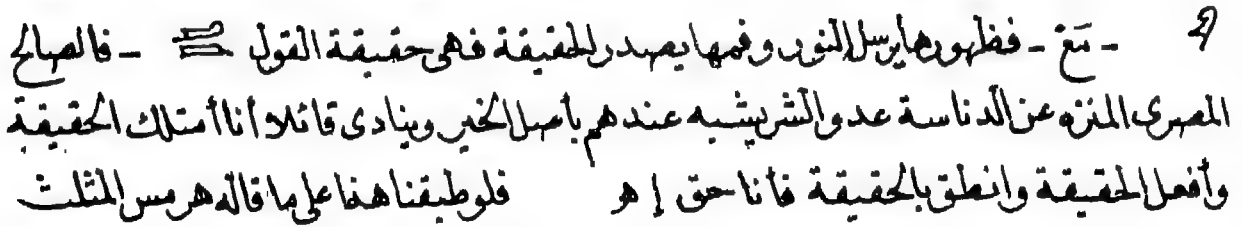 - مَع - فظهورها يرسل النور وفمها يصدر الحقيقة فهى حقيقة القول - فالصالح
المصرى المنزه عن الدناسة عدو الشر يشبه عندهم بأصل الخير وينادى قائلا أنا أمتلك الحقيقة
وأفعل الحقيقة وانطق بالحقيقة فأنا حق إ هـ فلو طبقنا هذا على ما قاله هرمس المثلث